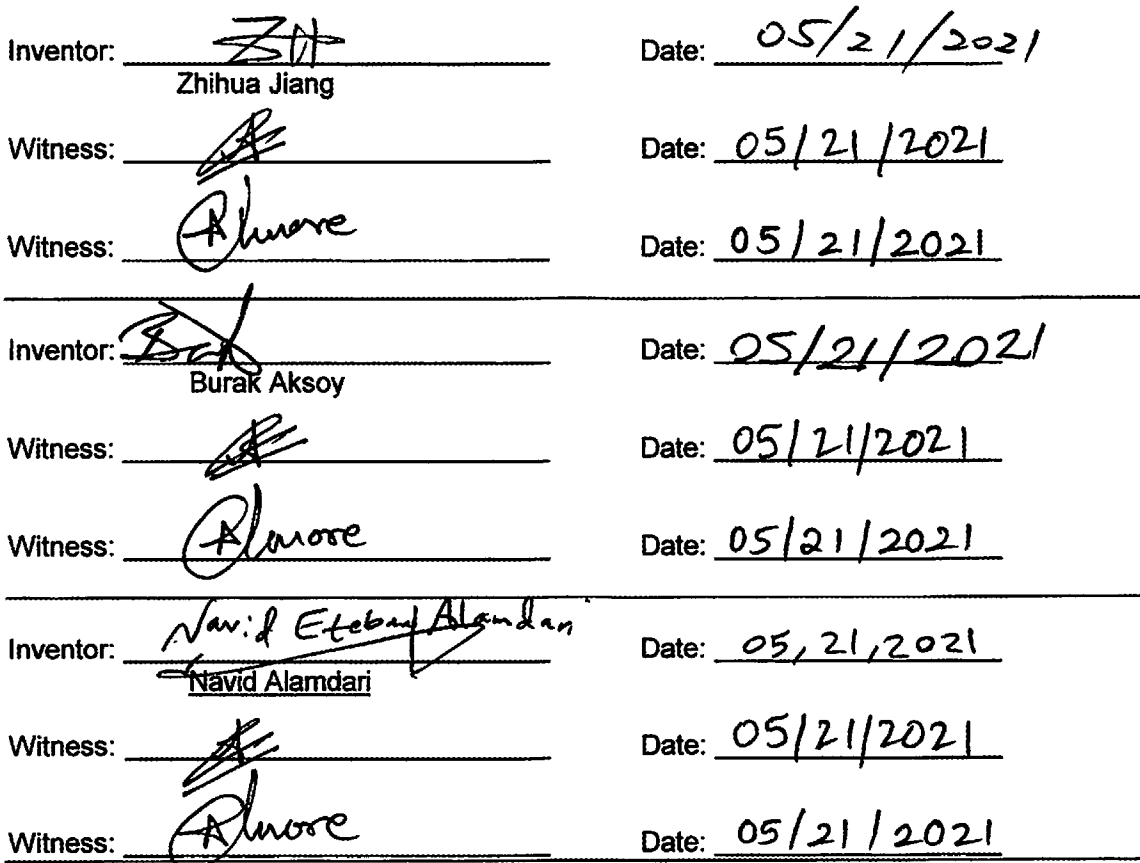 Inventor: Date: 05/21/2021
Zhihua Jiang
Witness: Date: 05/21/2021
Witness: Date: 05/21/2021
Inventor: Date: 05/21/2021
Burak Aksoy
Witness: Date: 05/21/2021
Witness: Date: 05/21/2021
Inventor: Navid Alamdari Date: 05,21,2021
Navid Alamdari
Witness: Date: 05/21/2021
Witness: Date: 05/21/2021